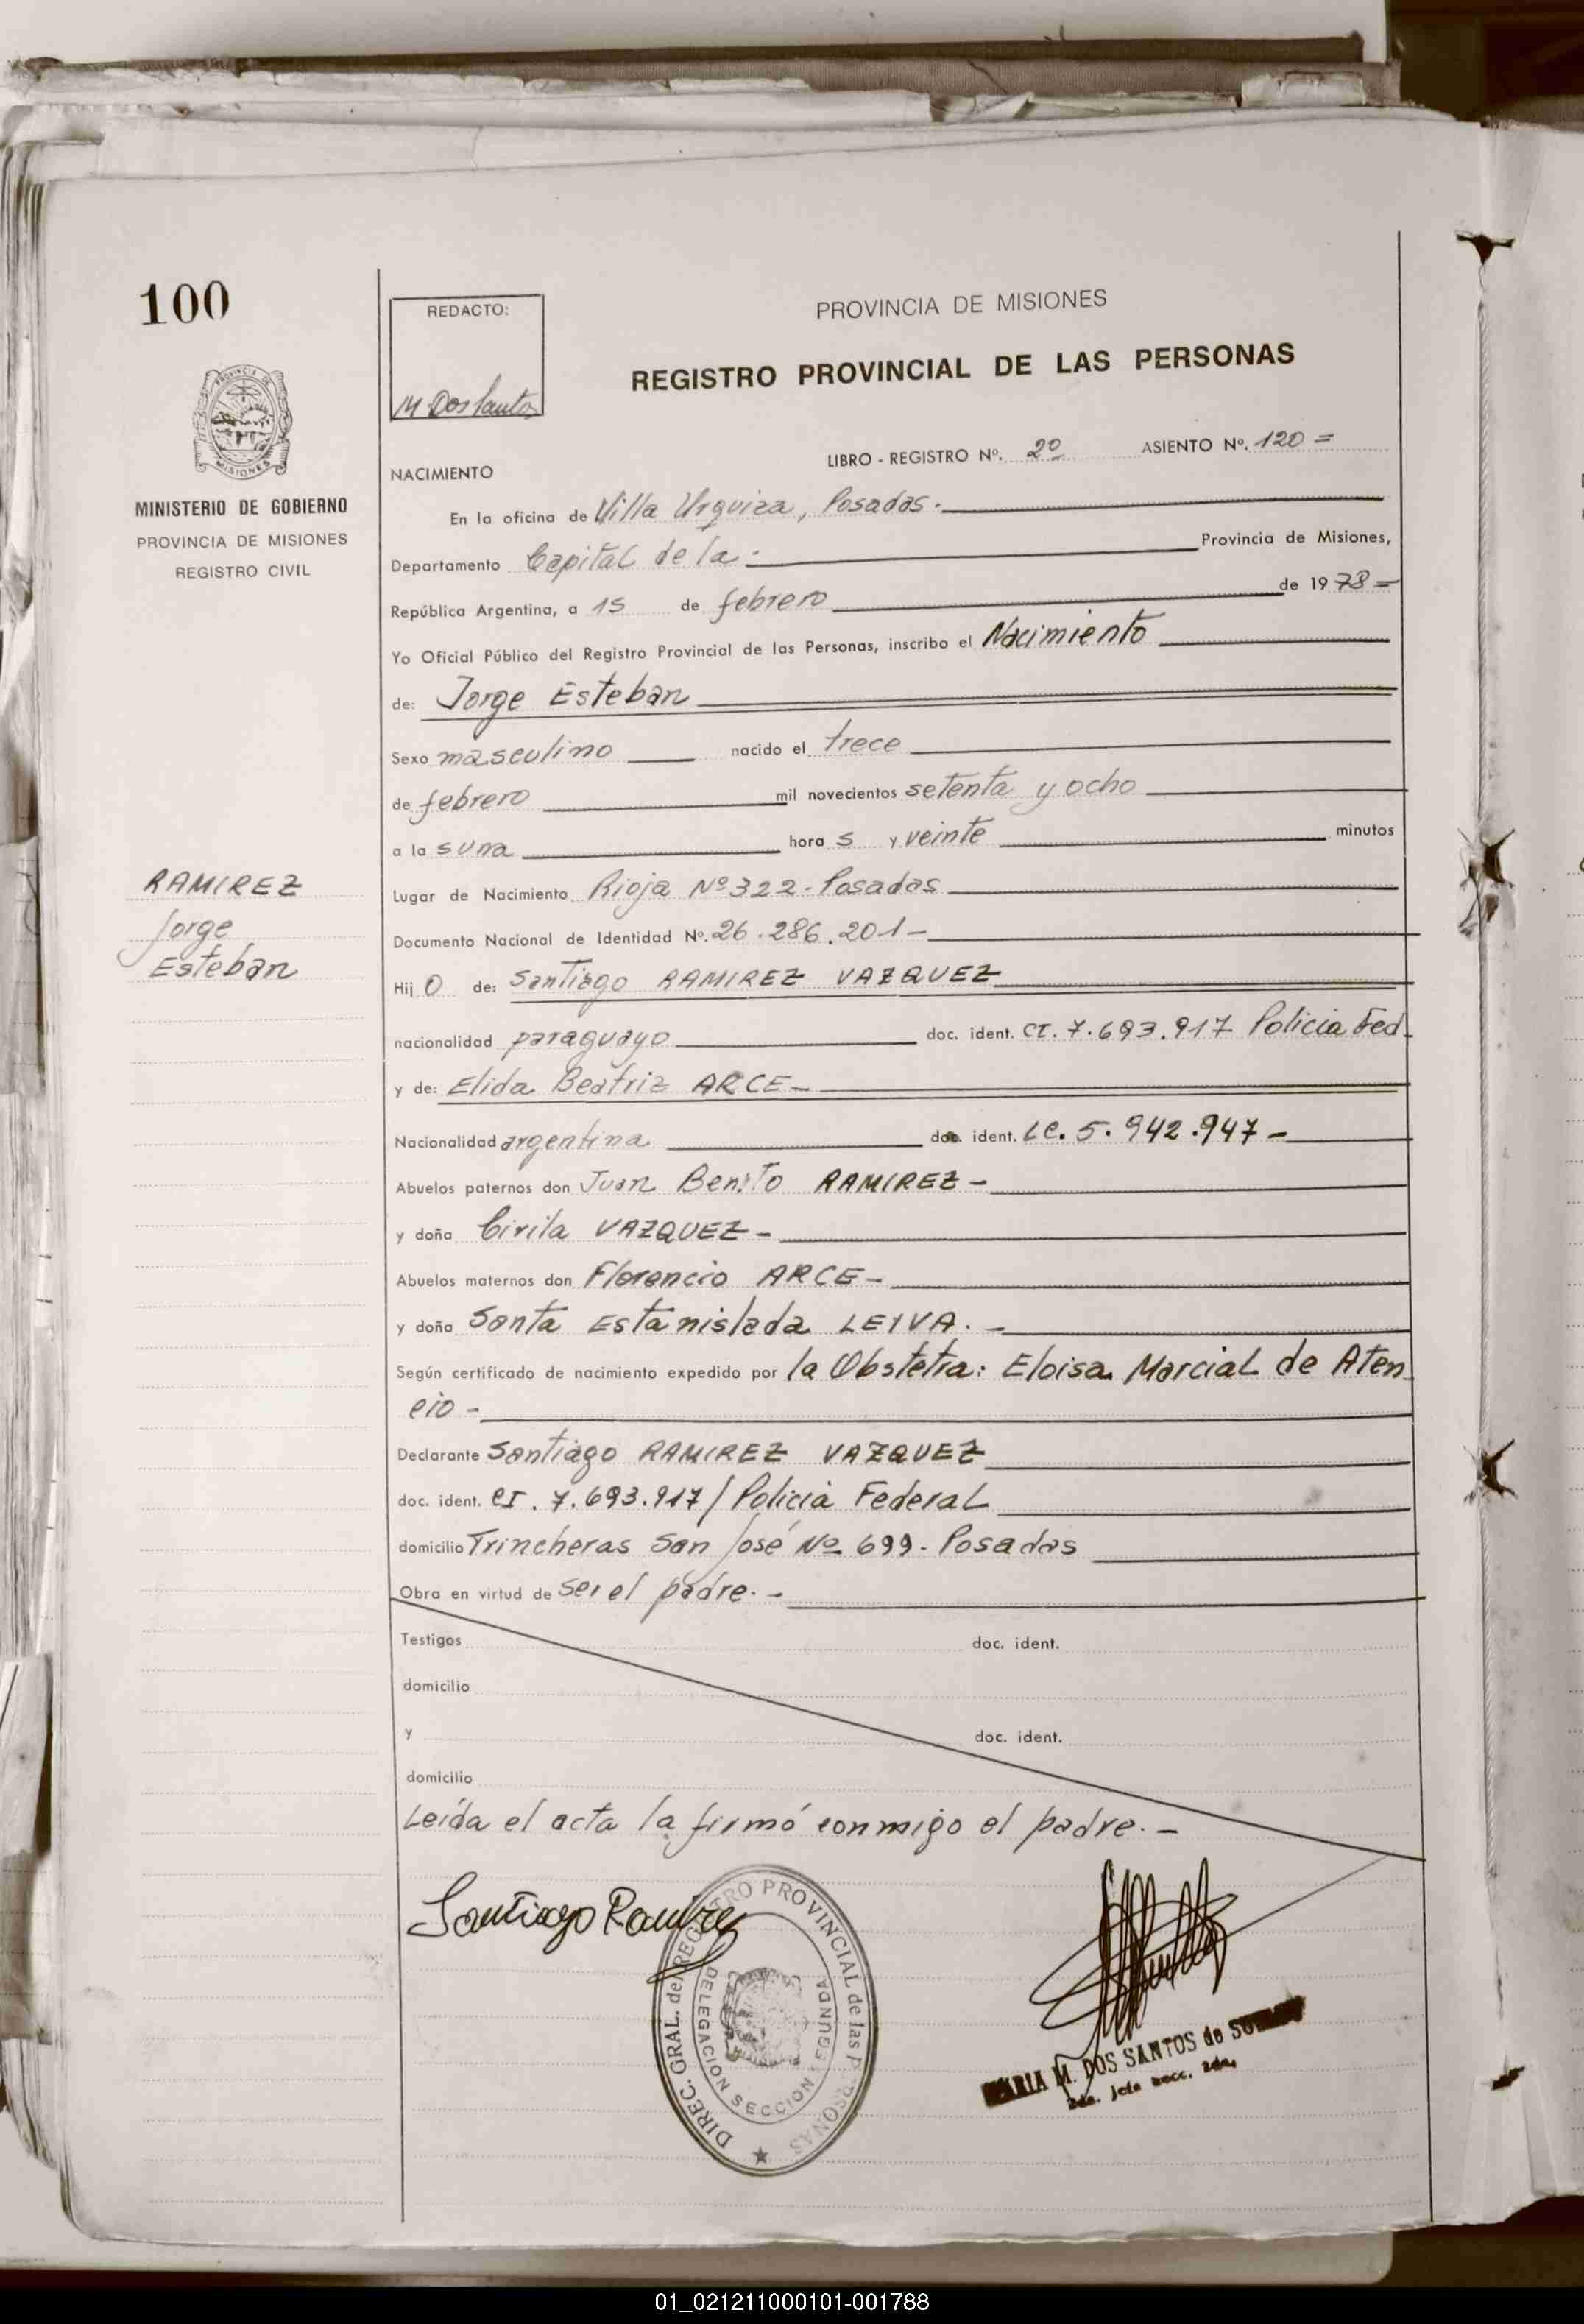 100
REDACTO:
M Dos Santos
PROVINCIA DE MISIONES
REGISTRO PROVINCIAL DE LAS PERSONAS
PROVINCIA DE
MISIONES
MINISTERIO DE GOBIERNO
PROVINCIA DE MISIONES
REGISTRO CIVIL
LIBRO - REGISTRO Nº. 2º ASIENTO Nº. 120 =
NACIMIENTO
En la oficina de Villa Urquiza, Posadas.
Departamento Capital de la - Provincia de Misiones,
República Argentina, a 15 de febrero de 1978 =
Yo Oficial Público del Registro Provincial de las Personas, inscribo el Nacimiento
de: Jorge Esteban
Sexo masculino nacido el trece
de febrero mil novecientos setenta y ocho
a la s una hora s y veinte minutos
RAMIREZ
Jorge
Esteban
Lugar de Nacimiento Rioja Nº 322 - Posadas
Documento Nacional de Identidad Nº. 26.286.201 -
Hij o de: Santiago RAMIREZ VAZQUEZ
nacionalidad paraguayo doc. ident. CI. 7.693.917 Policia Fed
y de: Elida Beatriz ARCE -
Nacionalidad argentina doc. ident. LC. 5.942.947 -
Abuelos paternos don Juan Benito RAMIREZ -
y doña Cirila VAZQUEZ -
Abuelos maternos don Florencio ARCE -
y doña Santa Estanislada LEIVA. -
Según certificado de nacimiento expedido por la Obstetra: Eloisa Marcial de Aten
cio -
Declarante Santiago RAMIREZ VAZQUEZ
doc. ident. CI. 7.693.917 / Policia Federal
domicilio Trincheras San José Nº 699 - Posadas
Obra en virtud de ser el padre. -
Testigos doc. ident.
domicilio
y doc. ident.
domicilio
Leída el acta la firmó conmigo el padre. -
Santiago Ramirez
DIREC. GRAL. del REGISTRO PROVINCIAL de las PERSONAS
DELEGACION SECCION SEGUNDA
MARIA M. DOS SANTOS de
2da. Jefe Secc. 2da.
01_021211000101-001788